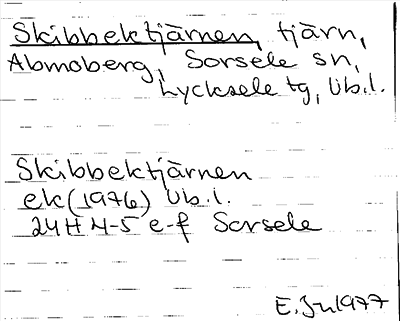 Skibbektjärnen, tjärn,
Abmoberg, Sorsele sn,
Lycksele tg, Vb.l.
Skibbektjärnen
ek(1976) Vb.l.
24H 4-5 e-f Sorsele
E.Ju1977